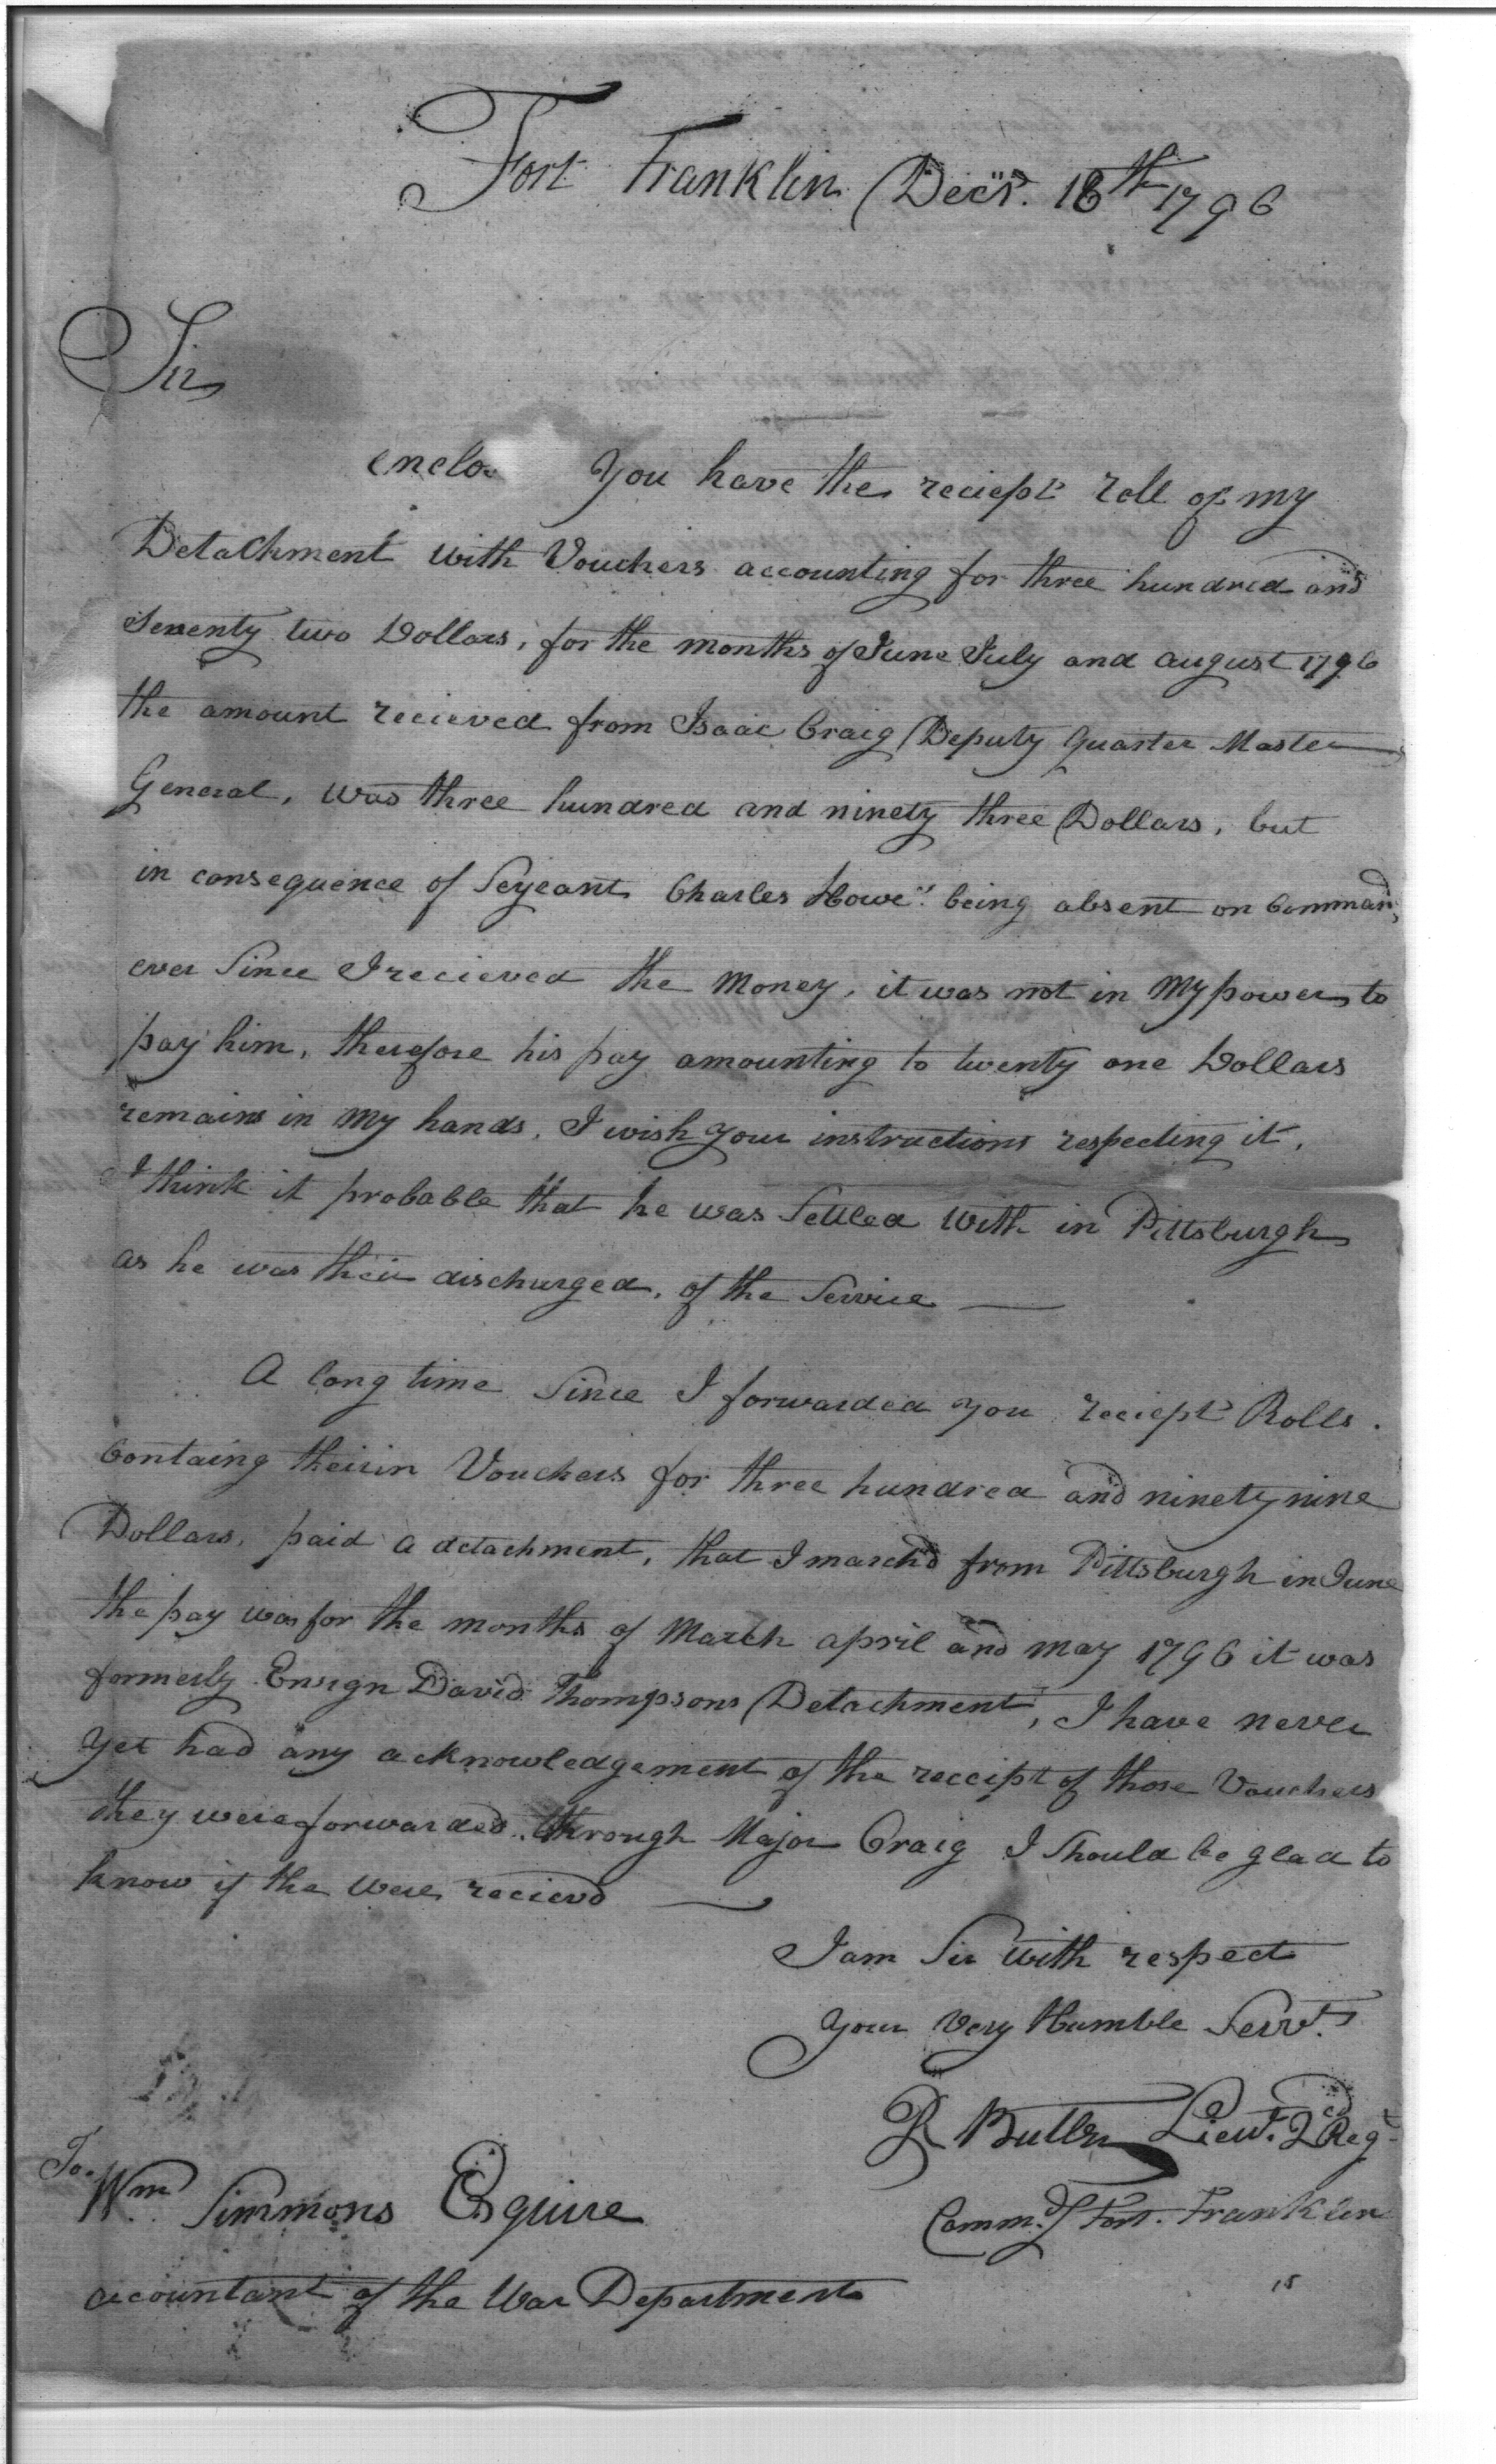 Fort Franklin Decr. 18th 1796
Sir
enclo You have the reciept roll of my
Detachment with Vouchers accounting for three hundred and
Seventy two Dollars, for the months of June July and august 1796
the amount recieved from Isaac Craig Deputy Quarter Master
General, was three hundred and ninety three Dollars, but
in consequence of Serjeant Charles Howe" being absent on Command,
ever Since I recieved the Money, it was not in My power to
pay him, therefore his pay amounting to twenty one Dollars
remains in My hands, I wish your instructions respecting it,
I think it probable that he was Settled With in Pittsburgh
as he was then discharged, of the Service —
A long time Since I forwarded you reciept Rolls.
Containg therin Vouchers for three hundred and ninety nine
Dollars, paid a detachment, that I march'd from Pittsburgh in June
the pay was for the months of March april and may 1796 it was
formerly Ensign David Thompsons Detachment, I have never
yet had any acknowledgement of the receipt of those Vouchers
they were forwarded through Major Craig I Should be glad to
know if the were recievd —
I am Sir with respect
your Very Humble Servt.
R Butler Lieut. 2d Regt
Commg Fort. Franklin
To.
Wm Simmons Esquire
accountant of the War Department
15